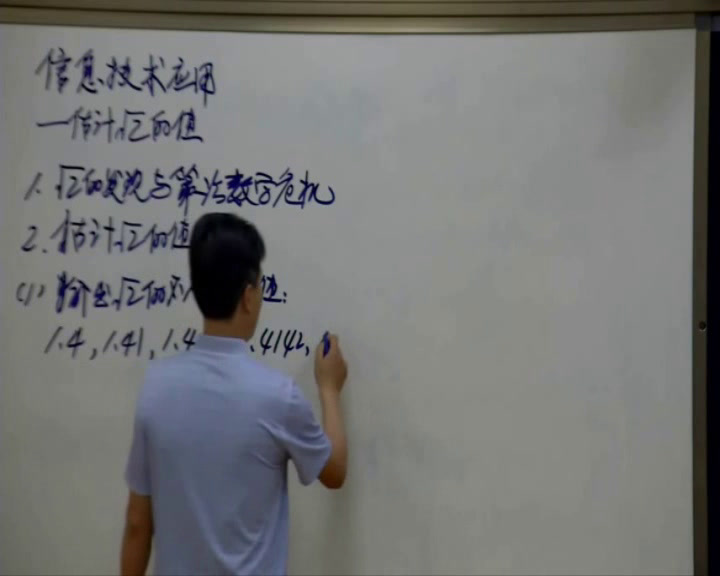 信息技术应用
—估计√2的值
1. √2的发现与第一次数学危机
2. 估计√2的值
(1) 输出√2的不 值:
1.4, 1.41, 1.4 .4142,